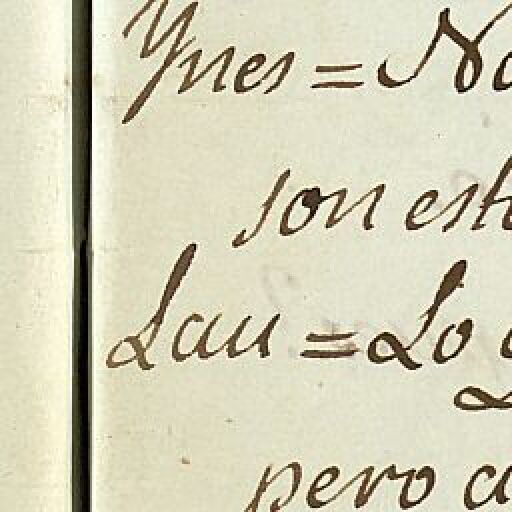 Ynes = No
son est
Lau = Lo
pero a